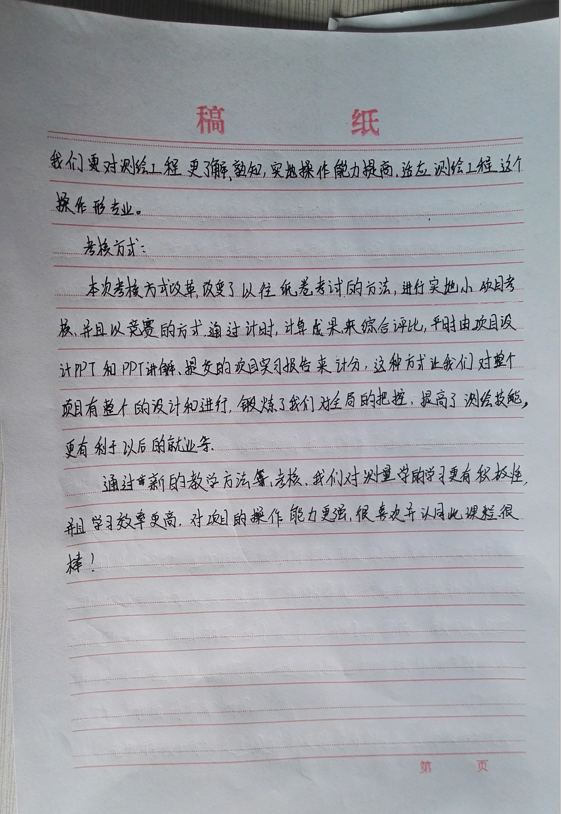 稿 纸
我们更对测绘工程更了解、熟知,实地操作能力提高.适应测绘工程这个
操作形专业。
考核方式:
本次考核方式改革,改变了以往纸卷考试的方法,进行实地小项目考
核,并且以竞赛的方式.通过计时,计算成果来综合评比,平时由项目设
计PPT和PPT讲解、提交的项目实习报告来计分,这种方式让我们对整个
项目有整个的设计和进行,锻炼了我们对全局的把控,提高了测绘技能,
更有利于以后的就业等.
通过新的教学方法等,考核、我们对测量学的学习更有积极性,
并且学习效率更高.对项目的操作能力更强,很喜欢并认同此课程很
棒!
第 页